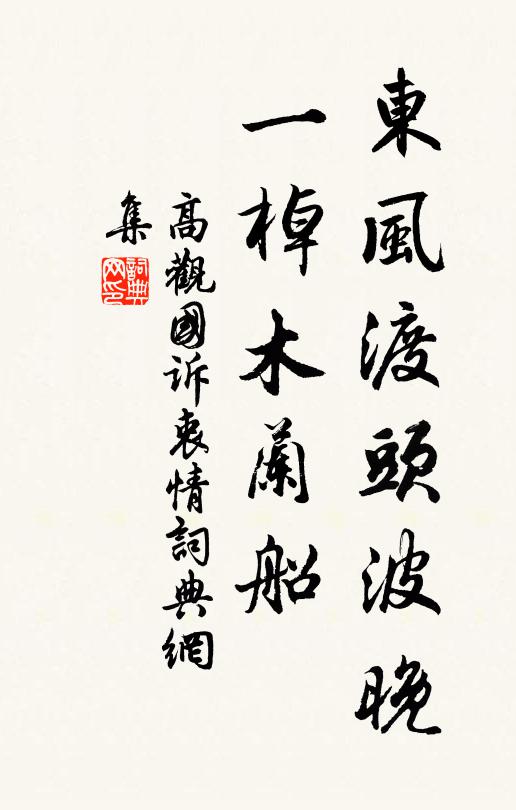 東風渡頭波晚
一棹木蘭船
高觀國訴衷情詞典網
集
詞典網印